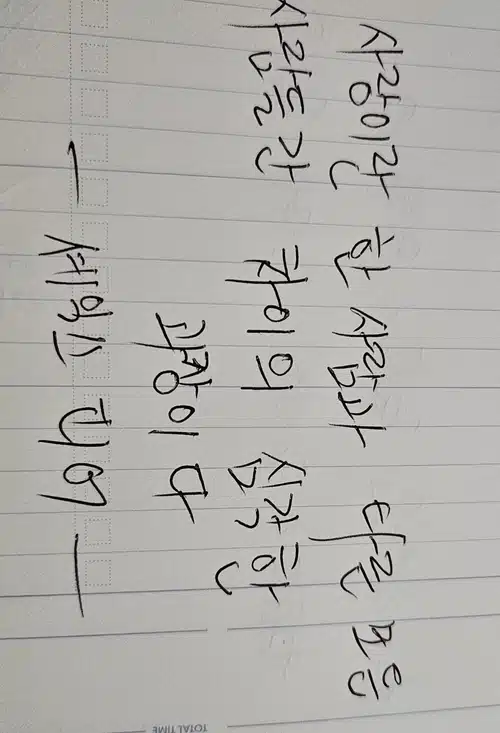 사랑이란 한 사람과 다른 모든
사람들간 차이의 심각한
과장이다
— 세익스피어 —
TOTAL TIME